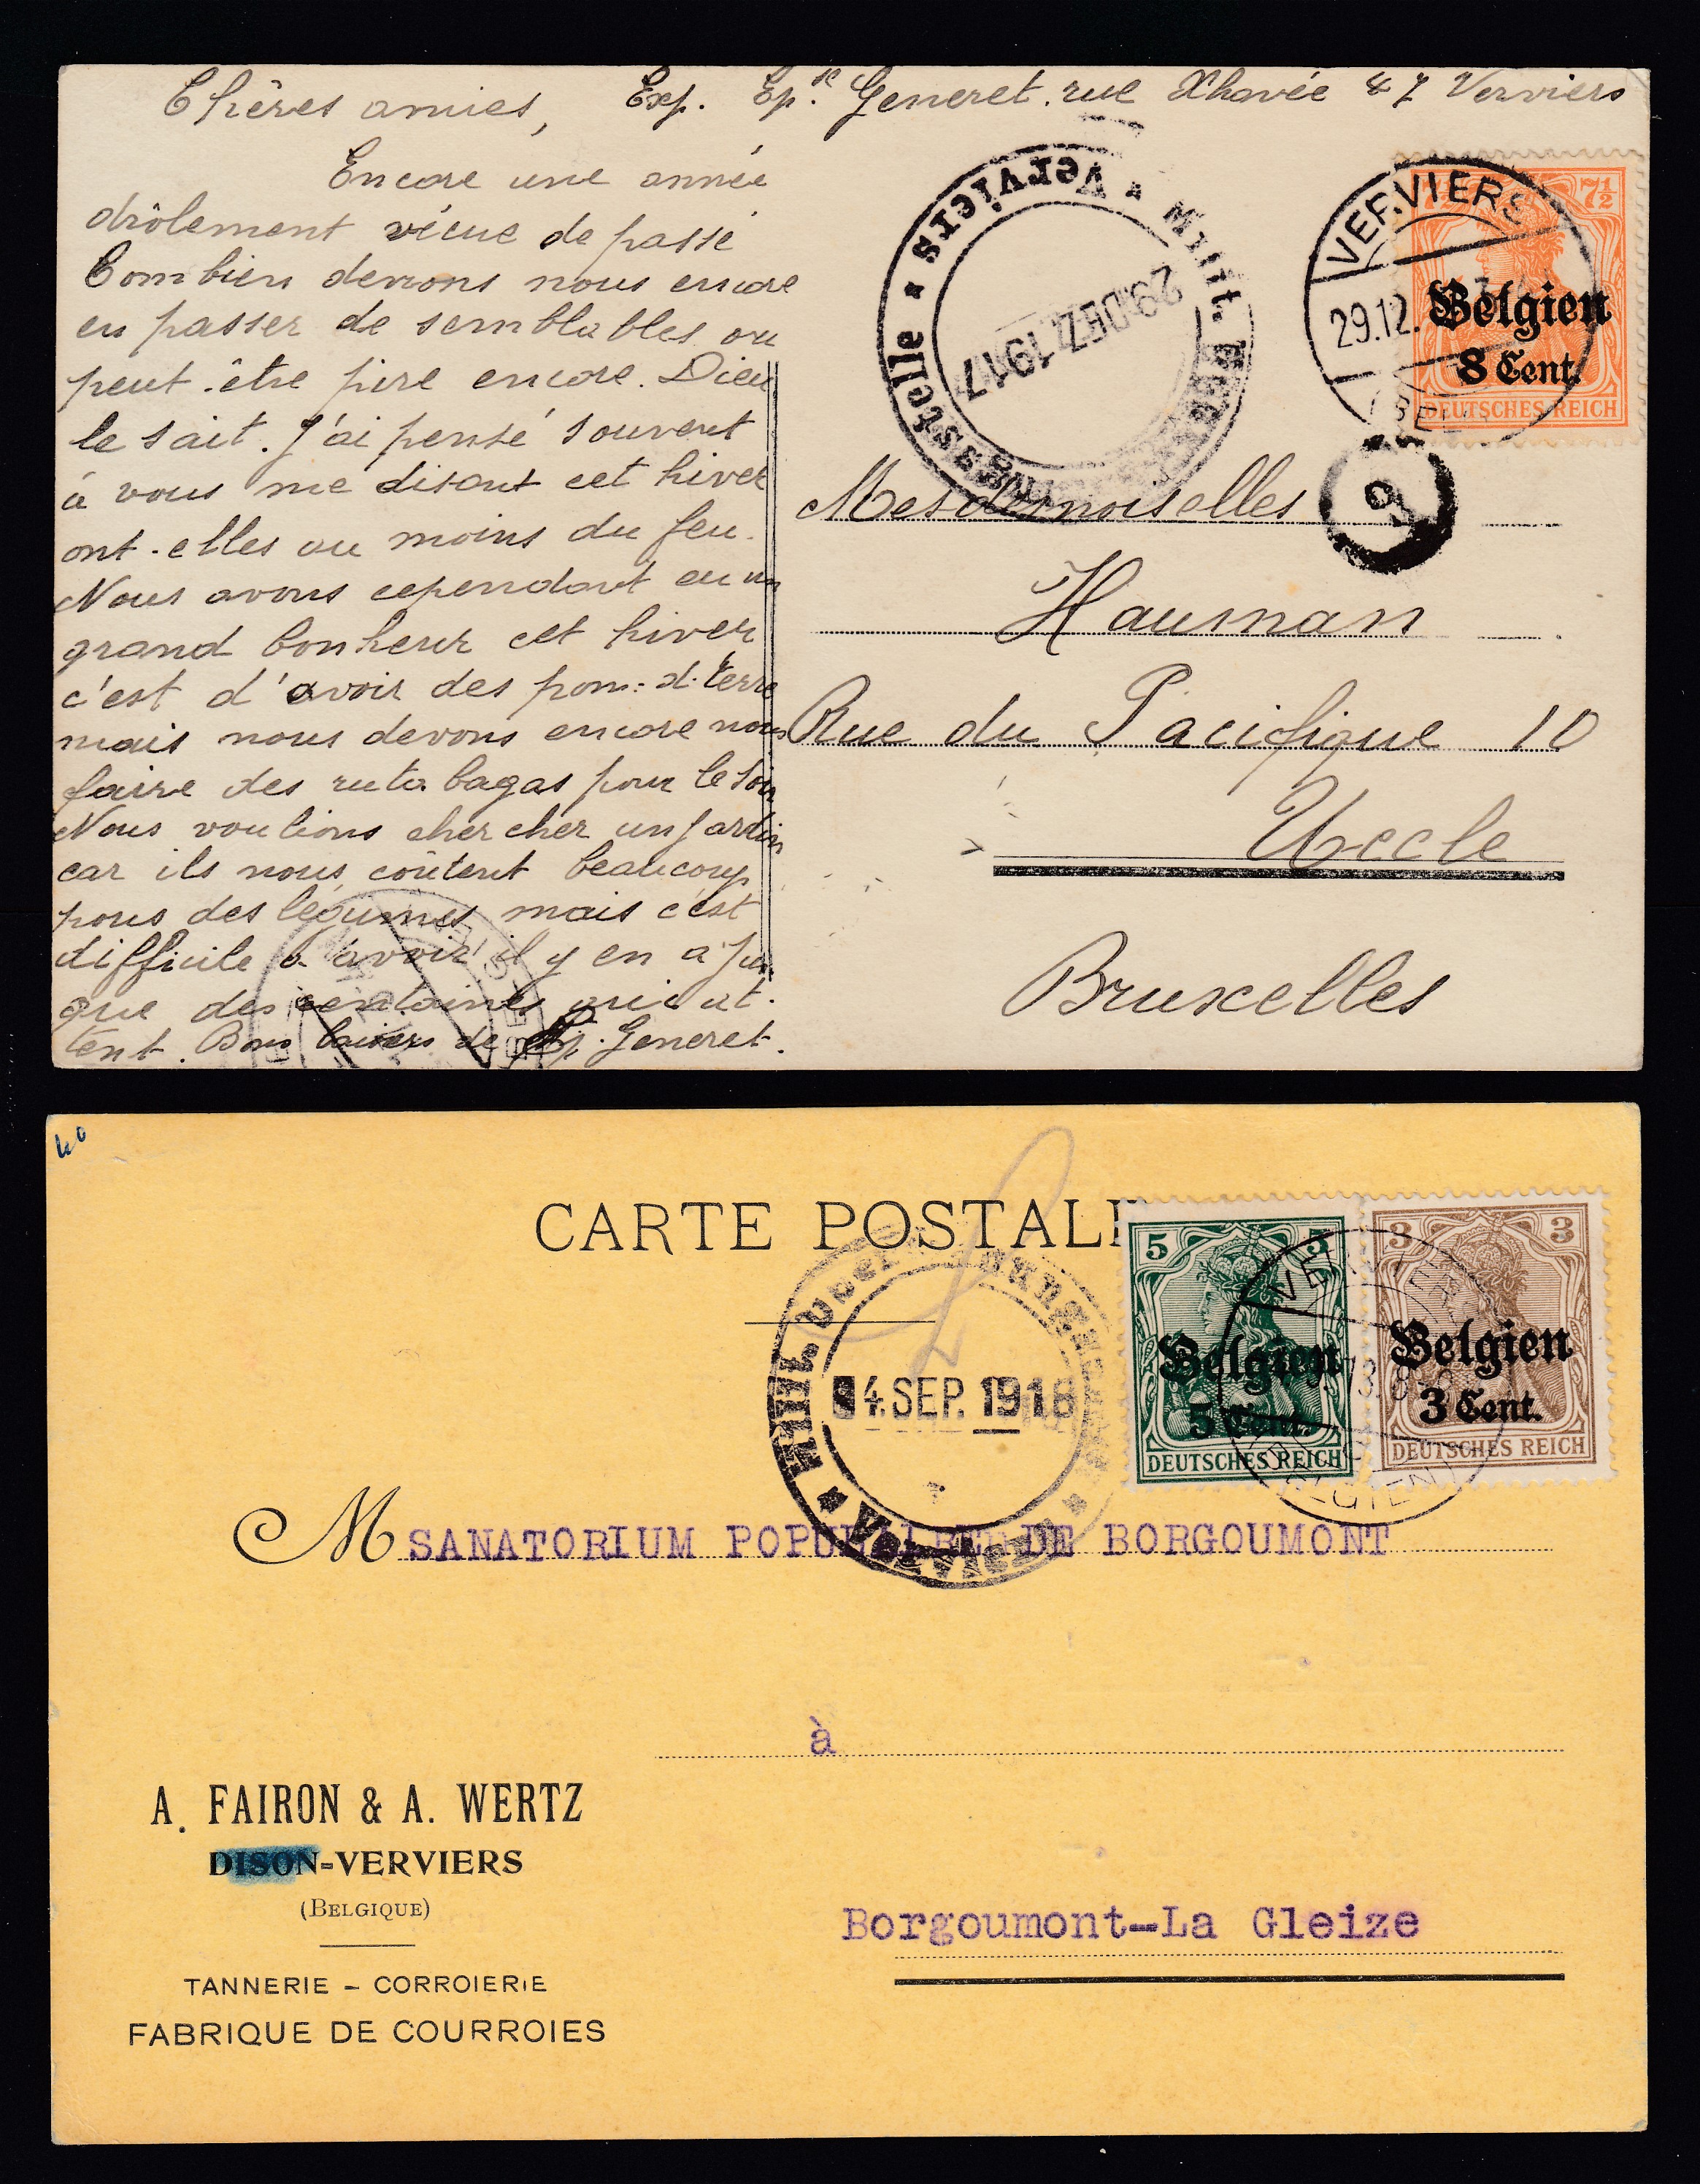 Chères amies,
Exp. Ep.se Generet. rue Xhavée 47 Verviers
Encore une année
drôlement vécue de passé
Combien devrons nous encore
en passer de semblables ou
peut-être pire encore. Dieu
le sait. J'ai pensé souvent
à vous me disant cet hiver
ont-elles au moins du feu.
Nous avons cependant eu un
grand bonheur cet hiver
c'est d'avoir des pom: d. terre
mais nous devons encore nous
faire des rutabagas pour le soir
Nous voulions chercher un jardin
car ils nous coûtent beaucoup
pous des légumes mais c'est
difficile à avoir il y en a jus
que des centaines qui at.
tent. Bons baisers de Ep. Generet.
Verviers * Milit.
stelle * Verviers
29. DEZ. 1917
VERVIERS
29.12.
7½
Belgien
8 Cent.
DEUTSCHES REICH
9
Mesdemoiselles
Hauman
Rue du Pacifique 10
Uccle
Bruxelles
40
CARTE POSTALE
Milit.
4. SEP. 1918
Verviers
5 5
Belgien
5 Cent.
DEUTSCHES REICH
3 3
Belgien
3 Cent.
DEUTSCHES REICH
VERVIERS
(BELGIEN)
M SANATORIUM POPULAIRE DE BORGOUMONT
à
Borgoumont-La Gleize
A. FAIRON & A. WERTZ
DISON-VERVIERS
(BELGIQUE)
TANNERIE - CORROIERIE
FABRIQUE DE COURROIES